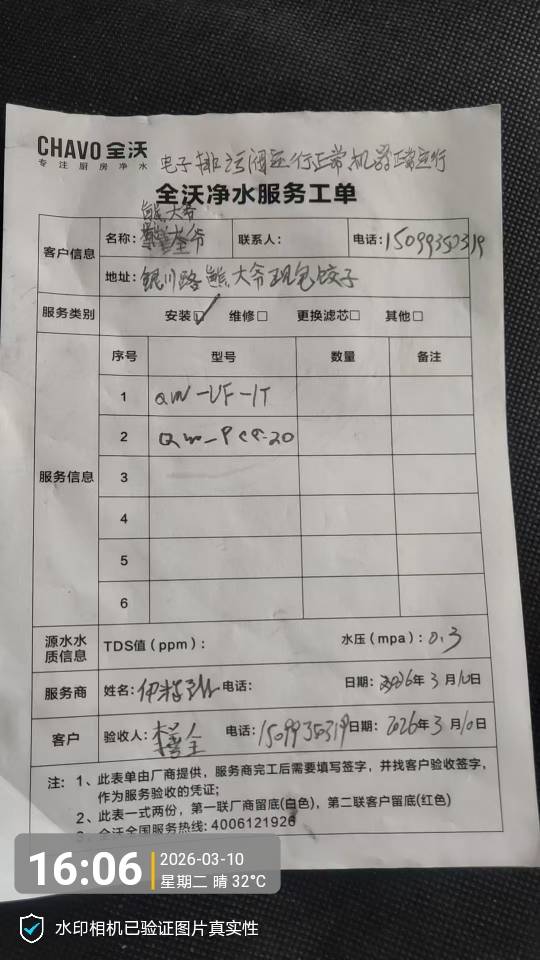 CHAVO 全沃
专注厨房净水
电子排污阀运行正常机器正常运行
全沃净水服务工单
熊大爷
客户信息 名称: 联系人: 电话:15099350319
地址:银川路熊大爷现包饺子
服务类别 安装☑ 维修□ 更换滤芯□ 其他□
服务信息 序号 型号 数量 备注
1 QW-UF-1T
2 QW-PCB-20
3
4
5
6
源水水质信息 TDS值(ppm): 水压(mpa):0.3
服务商 姓名:伊 电话: 日期:2026年3月10日
客户 验收人: 电话:15099350319 日期:2026年3月10日
注: 1、此表单由厂商提供，服务商完工后需要填写签字，并找客户验收签字，
作为服务验收的凭证;
2、此表一式两份，第一联厂商留底(白色)，第二联客户留底(红色)
3、全沃全国服务热线: 4006121926
16:06 2026-03-10
星期二 晴 32°C
水印相机已验证图片真实性